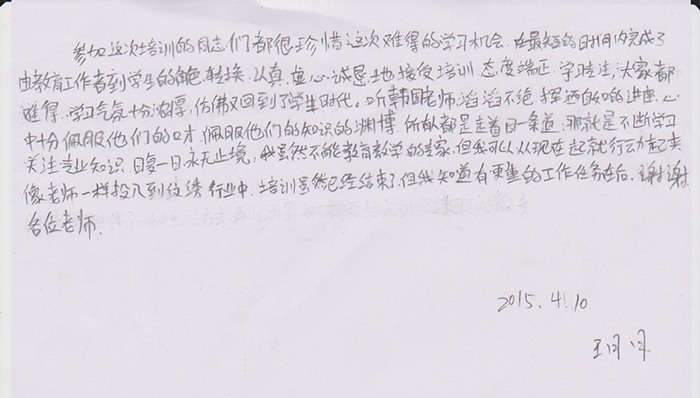 参加这次培训的同志们都很珍惜这次难得的学习机会.在最短的时间内完成了
由教育工作者到学生的角色转换.认真.虚心.诚恳地接受培训 态度端正.学习专注,大家都
难得.学习气氛十分浓厚,仿佛又回到了学生时代。听韩国老师滔滔不绝 挥洒自如的讲座.心
中十分佩服他们的口才.佩服他们的知识的渊博.所有都是走着同一条道.那就是不断学习
关注专业知识.日复一日.永无止境,我虽然不能教育教学的专家.但我可以从现在起就行动起来
像老师一样投入到纹绣行业中.培训虽然已经结束了,但我知道有更重的工作任务在后.谢谢
各位老师.
2015.4.10
王